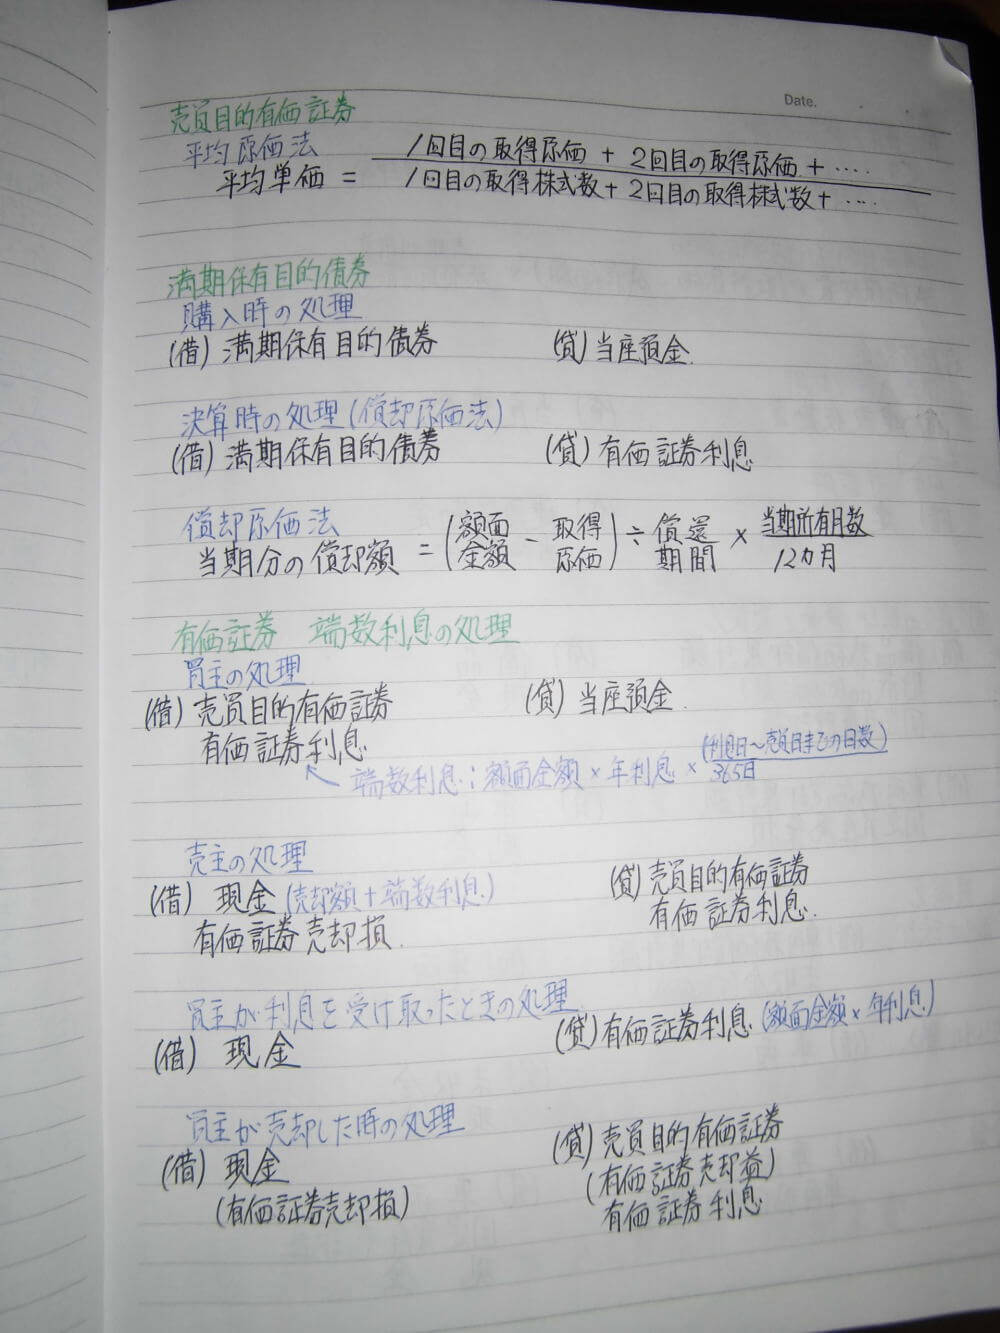 Date.
売買目的有価証券
平均原価法
平均単価 = 1回目の取得原価 + 2回目の取得原価 + ‥‥
1回目の取得株式数 + 2回目の取得株式数 + ‥‥
満期保有目的債券
購入時の処理
(借) 満期保有目的債券 (貸) 当座預金
決算時の処理(償却原価法)
(借) 満期保有目的債券 (貸) 有価証券利息
償却原価法
当期分の償却額 = (額面金額 - 取得原価) ÷ 償還期間 × 当期所有月数
12カ月
有価証券 端数利息の処理
買主の処理
(借) 売買目的有価証券 (貸) 当座預金
有価証券利息
← 端数利息:額面金額 × 年利息 × (利息日〜売買日までの日数)
365日
売主の処理
(借) 現金 (売却額+端数利息) (貸) 売買目的有価証券
有価証券売却損 有価証券利息
買主が利息を受け取ったときの処理
(借) 現金 (貸) 有価証券利息 (額面金額 × 年利息)
買主が売却した時の処理
(借) 現金 (貸) 売買目的有価証券
(有価証券売却損) (有価証券売却益)
有価証券利息